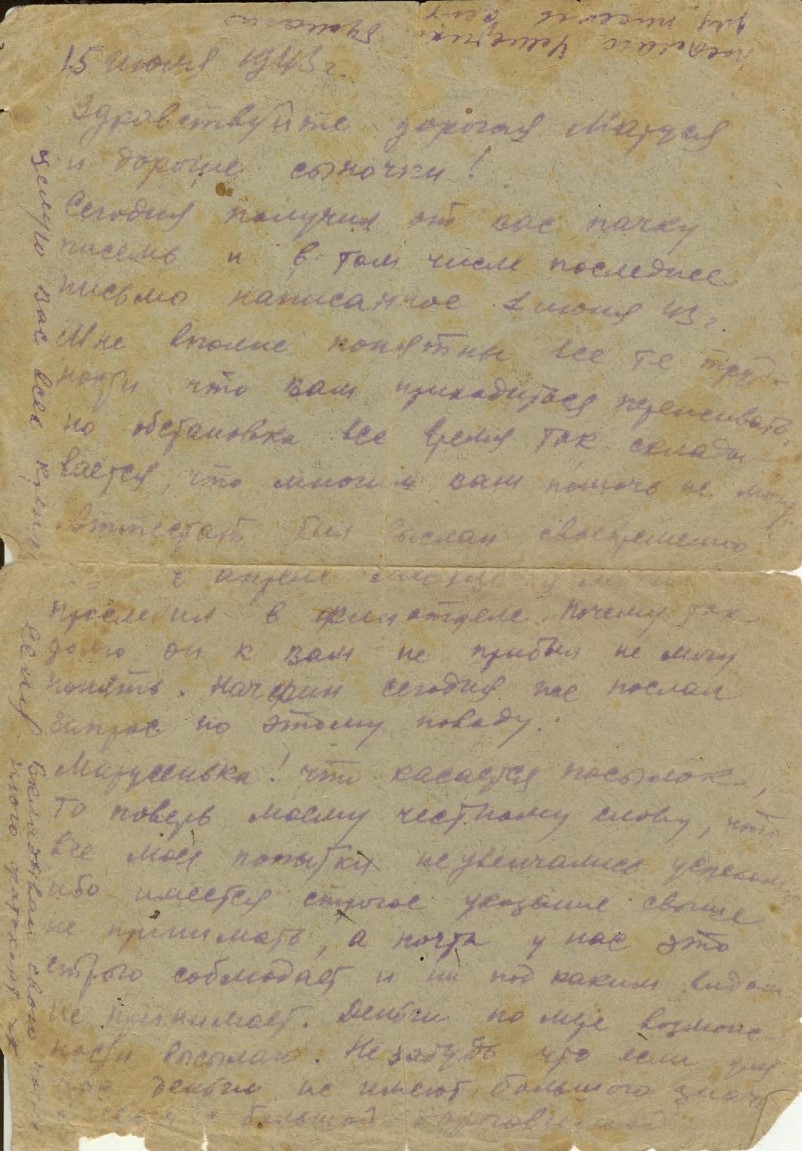 15 июня 1943 г.
Здравствуйте дорогая Маруся
и дорогие сыночки!
Сегодня получил от вас пачку
писемь и в том числе последнее
письмо написанное 1 июня 43 г.
Мне вполне понятны все те труд-
ности что вам приходиться переживать,
но обстановка все время так склады-
вается, что многим вам помочь не могу
Аттестат был выслан своевременно
в апреле месяце
проследил в финотделе. Почему так
долго он к вам не прибыл не могу
понять. Начфин сегодня же послал
запрос по этому поводу.
Марусенька! что касается посылок,
то поверь моему честному слову, что
все мои попытки не увенчались успехом
ибо имеется строгое указание свыше
не принимать, а почта у нас это
строго соблюдает и ни под каким видом
не принимает. Деньги по мере возмож-
ности высылаю. Не забудь что если для
нас деньги не имеют большого знач
большой
целую вас всех
Если
вкладываю свою
посылаю
для писем
бумага